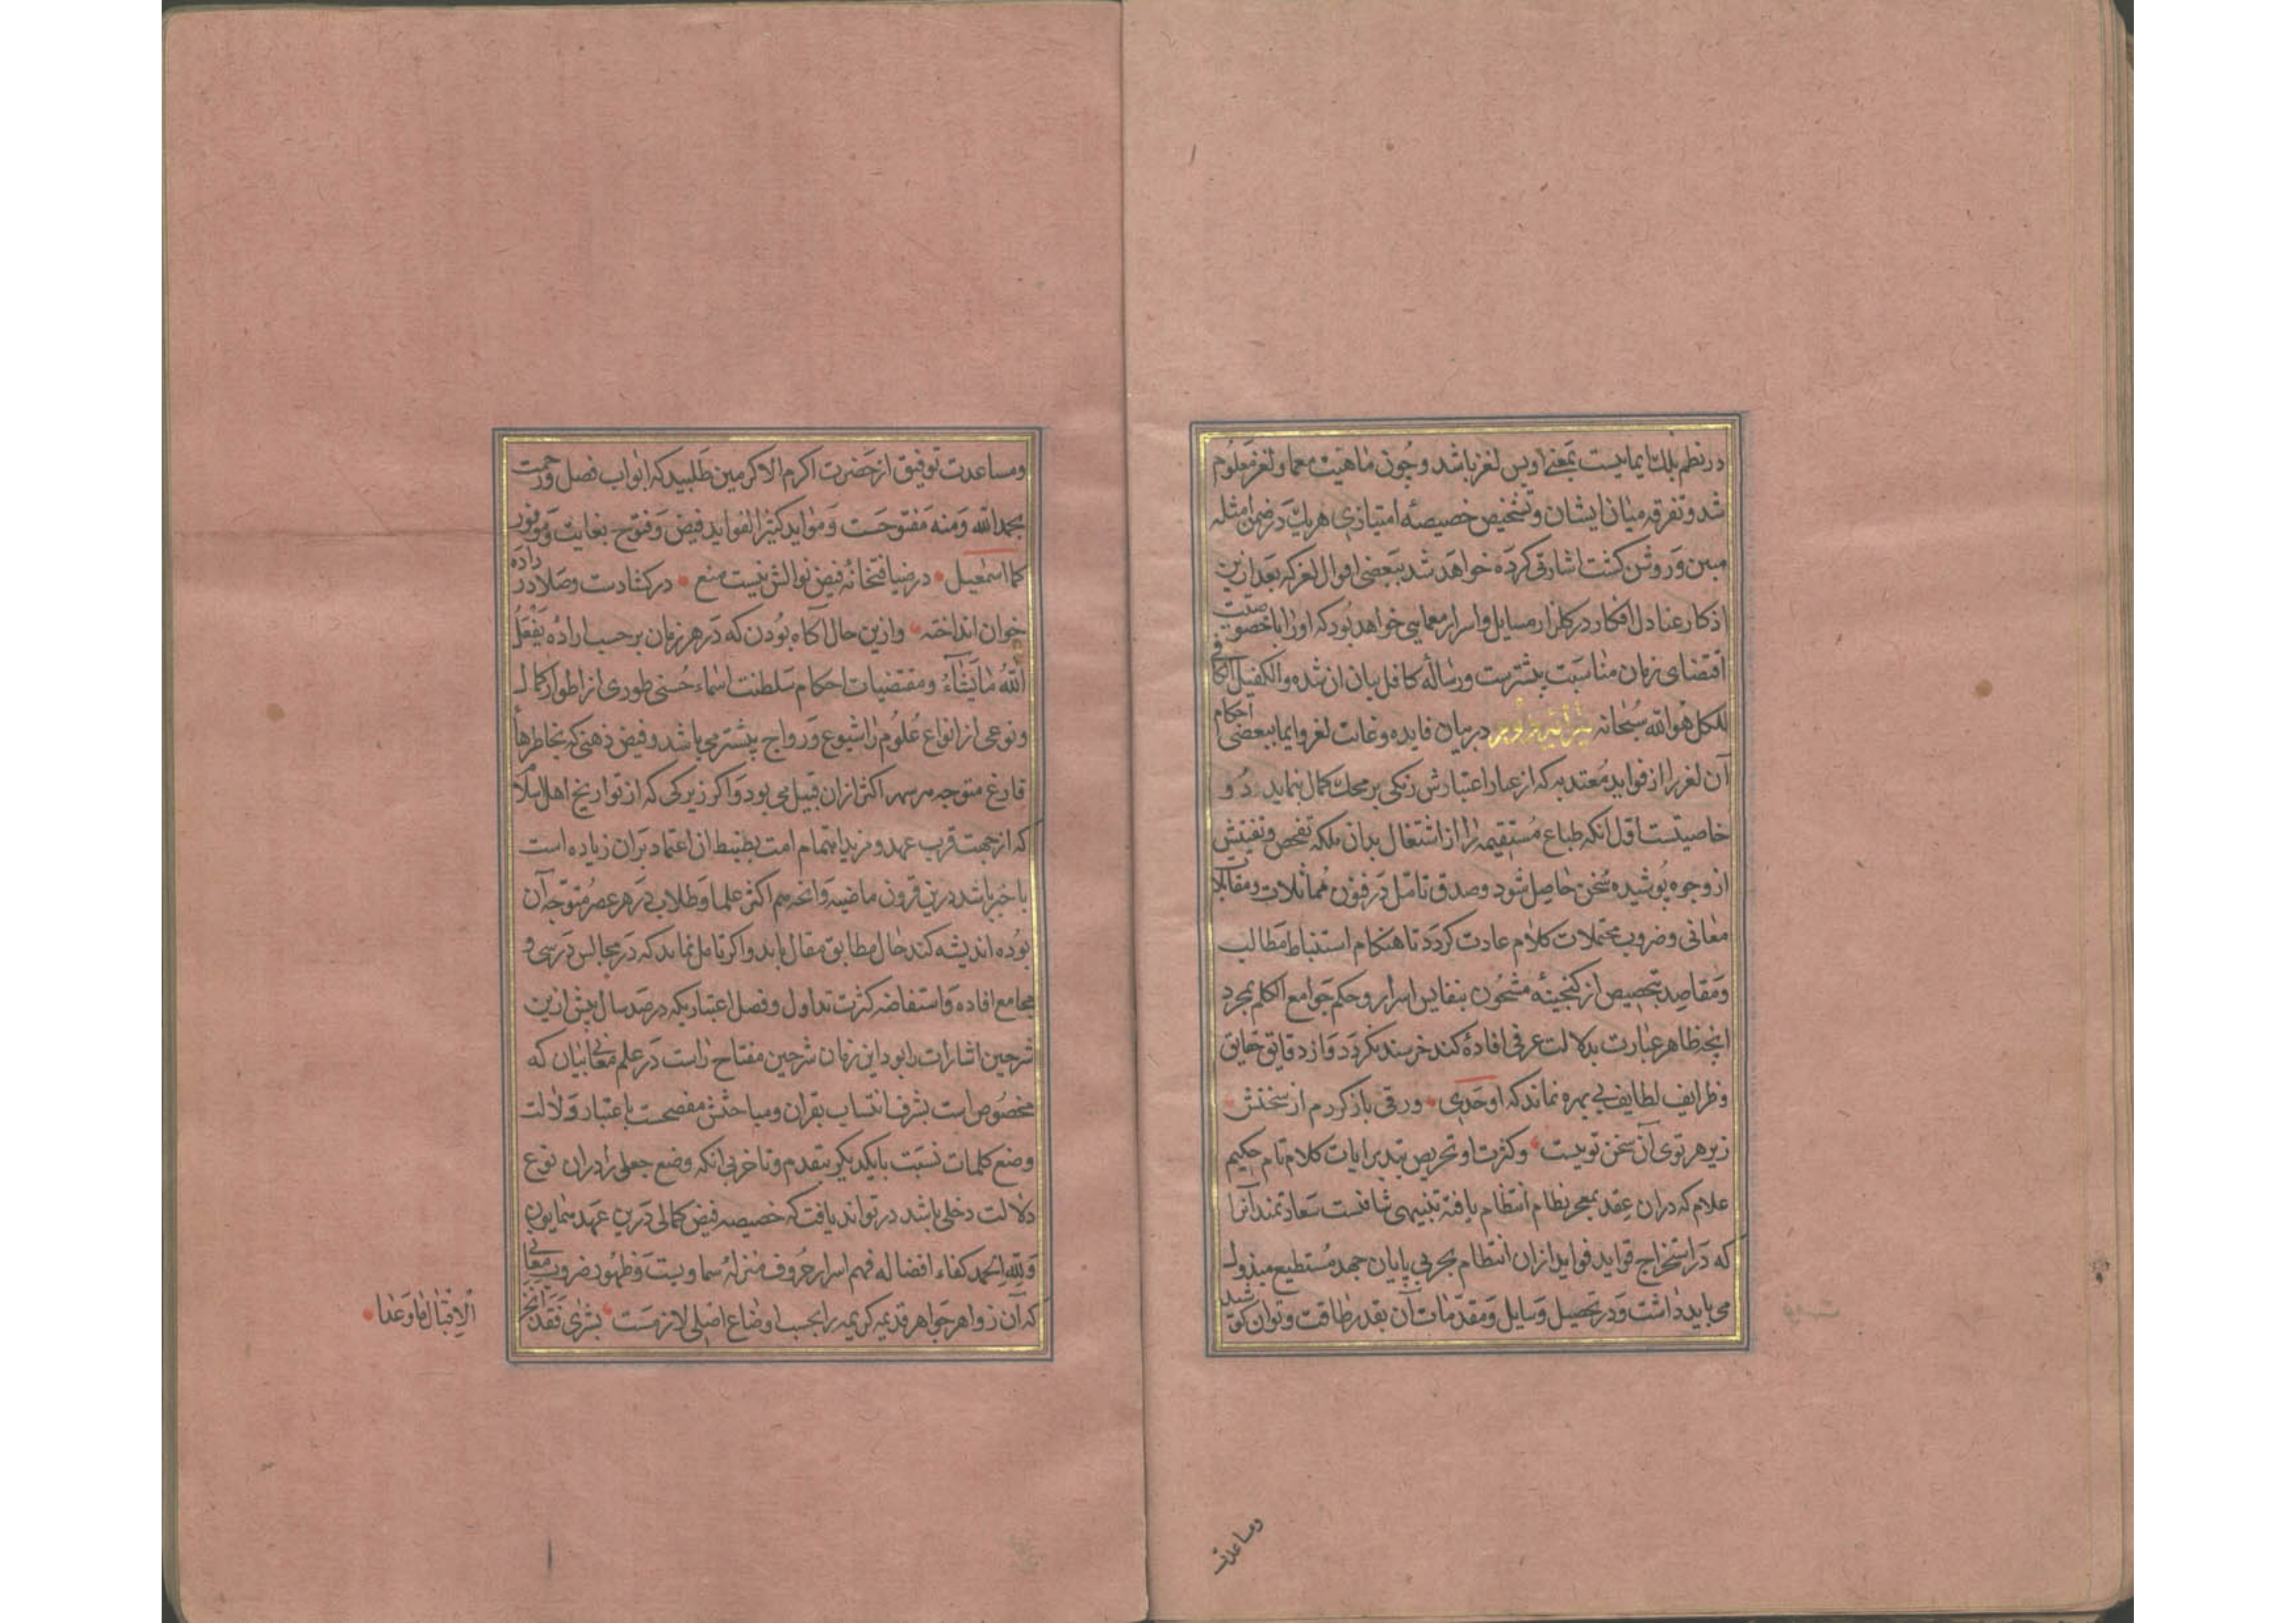 در نظم بلك ایماییست بمعنی او پس لغز باشد و چون ماهیت معما و لغز معلوم
شد و تفرقه میان ایشان و تشخیص خصیصهٔ امتیازی هریك در ضمن امثله
مبین و روشن كشت اشارتی كرده خواهد شد ببعضی احوال لغز كه بعد ازین
اذكار عنادل افكار در كلزار مسایل و اسرار معمایی خواهد بود كه او را با خصوصیت
اقتضای زمان مناسبت بیشترست و رساله كافل بیان ان شده والكفیل الكافی
للكل هو الله سبحانه در بیان فایده و غایت لغز و ایما ببعضی احكام
آن لغز را از فواید معتد به كه از عیار اعتبارش رنكی بر محك كمال نماید دو
خاصیتست اول انكه طباع مستقیمه را از اشتغال بدان ملكه تفحص و تفتیش
از وجوه پوشیده سخن حاصل شود و صدق تامل در فنون مماثلات و مقابلات
معانی و ضروب محتملات كلام عادت كردد تا هنكام استنباط مطالب
و مقاصد بتخصیص از كنجینهٔ مشحون بنفایس اسرار و حكم جوامع الكلم بمجرد
انچه ظاهر عبارت بدلالت عرفی افادهٔ كند خرسند نكردد و از دقایق حقایق
و ظرایف لطایف بی بهره نماند كه اوحدی ورقی باز كردم از سخنش
زیر هر توی آن سخن توییست و كثرت او تحریص بتدبر ایات كلام تام حكیم
علام كه دران عقد بمعجر نظام انتظام یافته تنبیهی شافیست سعادتمند آنرا
كه در استخراج فراید فواید ازان انتظام بحر بی پایان جهد مستطیع مبذول
می باید داشت و در تحصیل وسایل و مقدمات آن بقدر طاقت و توان كوشید
ومساعدت
ومساعدت توفیق از حضرت اكرم الاكرمین طلبید كه ابواب فضل و رحمت
بحمد الله و منه مفتوحست و مواید كثیر الفواید فیض و فتوح بغایت و موفور
كما اسمعیل در ضیافتخانهٔ فیض نوالش نیست منع در كشادست و صلا در داده
خوان انداخته و ازین حال آكاه بودن كه در هر زمان برحسب اراده یفعل
الله ما یشاء و مقتضیات احكام سلطنت اسماء حسنی طوری از اطوار كمال
و نوعی از انواع علوم را شیوع و رواج بیشتر می باشد و فیض ذهنی كه بخاطرهاء
فارغ متوجه میرسد اكثر ازان قبیل می بود و اكر زیركی كه از تواریخ اهل اسلام
كه از جهت قرب عهد و مزید اهتمام امت بضبط ان اعتماد بران زیاده است
با خبر باشد درین قرون ماضیه و انچه هم اكثر علما و طلاب در هر عصر متوجه آن
بوده اندیشه كند حال مطابق مقال یابد و اكر تامل نماید كه در مجالس درسی و
مجامع افاده و استفاضه كثرت تداول و فصل اعتباریكه در صد سال پیش ازین
شرحین اشارات را بود این زمان شرحین مفتاح راست در علم معانی بیان كه
مخصوص است بشرف انتساب بقران و مباحثش مفصحست باعتبار دلالت
وضع كلمات نسبت با یكدیكر بتقدم و تاخر بی انكه وضع جعلی را دران نوع
دلالت دخلی باشد در تواند یافت كه خصیصه فیض كمالی درین عهد همایون
ولله الحمد كفاء افضاله فهم اسرار حروف منزلهٔ سماویست و ظهور ضروب معانی
كه آن زواهر جواهر قدیمه كریمه را بحسب اوضاع اصلی لازمست بشری فقد انجز
الاقبال ما وعدا